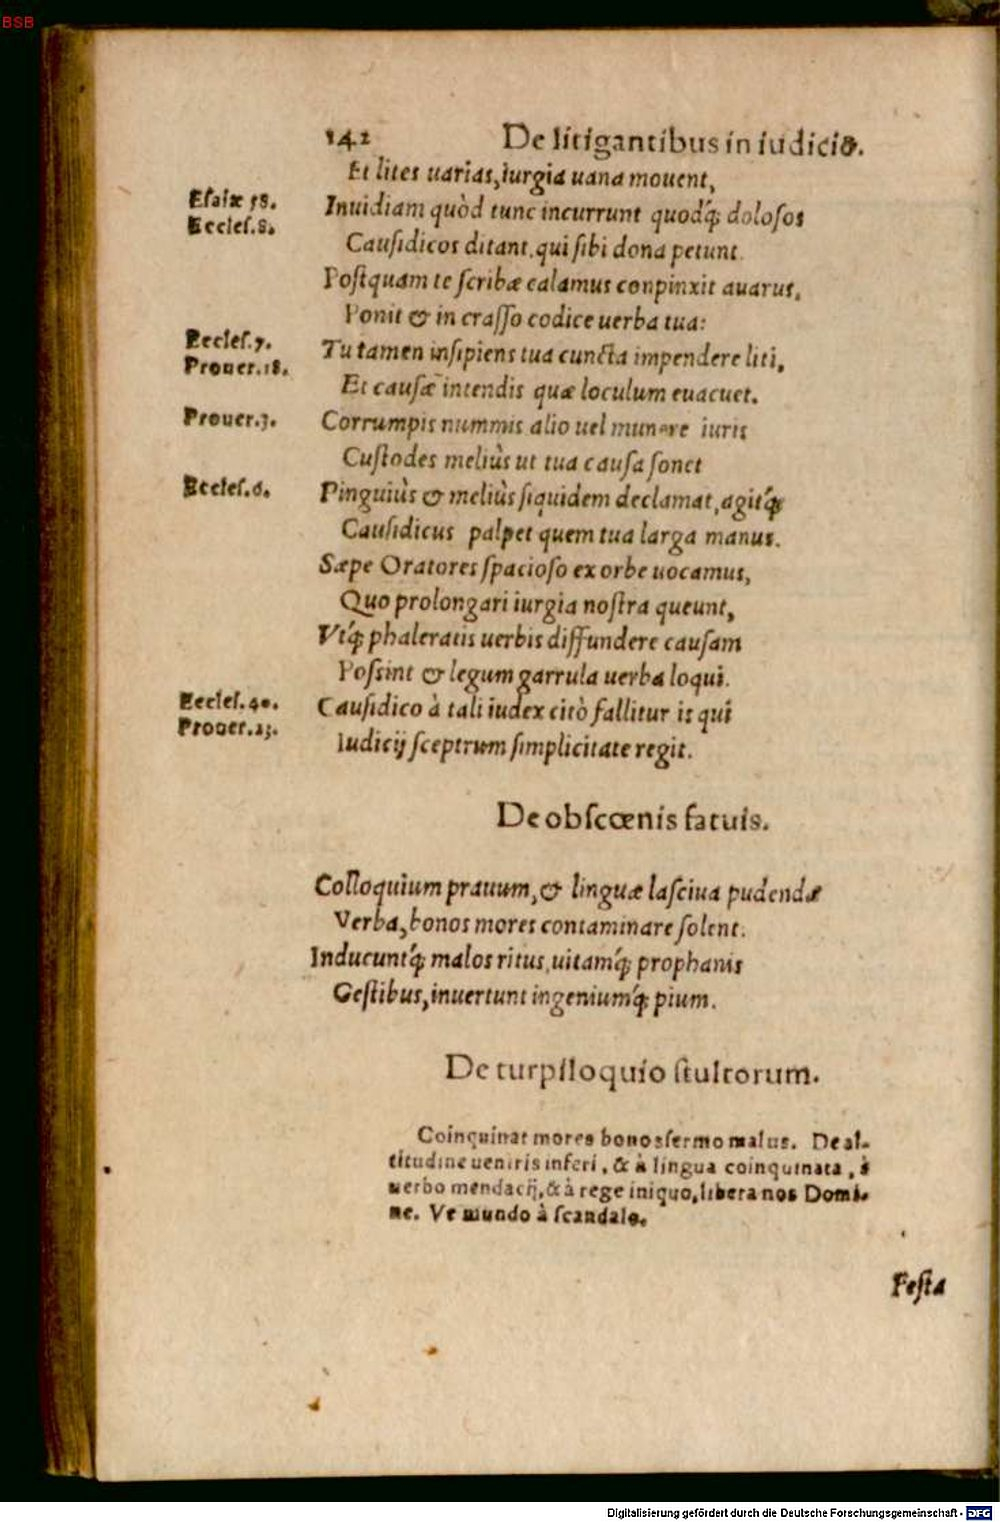 BSB
142 De litigantibus in iudicio.
Et lites uarias, iurgia uana mouent,
Esaiæ 58. Inuidiam quòd tunc incurrunt quodq́; dolosos
Eccles. 8. Causidicos ditant, qui sibi dona petunt.
Postquam te scribæ calamus conpinxit auarus,
Ponit & in crasso codice uerba tua:
Eccles. 7. Tu tamen insipiens tua cuncta impendere liti,
Prouer. 18. Et causæ intendis quæ loculum euacuet.
Prouer. 3. Corrumpis nummis alio uel munere iuris
Custodes meliùs ut tua causa sonet
Eccles. 6. Pinguiùs & meliùs siquidem declamat, agitq́;
Causidicus palpet quem tua larga manus.
Sæpe Oratores spacioso ex orbe uocamus,
Quo prolongari iurgia nostra queunt,
Vtq́; phaleratis uerbis diffundere causam
Possint & legum garrula uerba loqui.
Eccles. 40. Causidico à tali iudex citò fallitur is qui
Prouer. 23. Iudicij sceptrum simplicitate regit.
De obscœnis fatuis.
Colloquium prauum, & linguæ lasciua pudendæ
Verba, bonos mores contaminare solent.
Inducuntq́; malos ritus, uitamq́; prophanis
Gestibus, inuertunt ingeniumq́; pium.
De turpiloquio stultorum.
Coinquinat mores bonos sermo malus. De al-
titudine uentris inferi, & à lingua coinquinata, à
uerbo mendacij, & à rege iniquo, libera nos Domi-
ne. Ve mundo à scandalo.
Festa
Digitalisierung gefördert durch die Deutsche Forschungsgemeinschaft - DFG